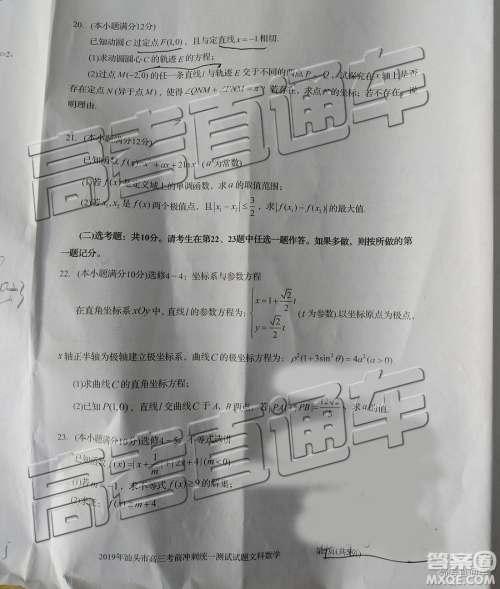 20. (本小题满分12分)
已知动圆C过定点F(1,0), 且与定直线x=-1相切.
(1)求动圆圆心C的轨迹E的方程;
(2)过点M(-2,0)的任一条直线l与轨迹E交于不同的两点P、Q, 试探究在x轴上是否
存在定点N(异于点M), 使得∠QNM+∠PNM=π? 若存在, 求点N的坐标; 若不存在, 说
明理由.
21. (本小题满分12分)
已知函数f(x)=x²+ax+2lnx (a为常数)
(1)若f(x)是定义域上的单调函数, 求a的取值范围;
(2)若x₁,x₂是f(x)两个极值点, 且|x₁-x₂|≤3/2, 求|f(x₁)-f(x₂)|的最大值.
(二)选考题: 共10分。请考生在第22、23题中任选一题作答。如果多做, 则按所做的第
一题记分。
22. (本小题满分10分)选修4-4: 坐标系与参数方程
在直角坐标系xOy中, 直线l的参数方程为: { x=1+√2/2 t y=√2/2 t (t为参数). 以坐标原点为极点,
x轴正半轴为极轴建立极坐标系, 曲线C的极坐标方程为: ρ²(1+3sin²θ)=4a²(a>0)
(1)求曲线C的直角坐标方程;
(2)已知P(1,0), 直线l交曲线C于A、B两点, 若|PA|+|PB|= 求a的值.
23. (本小题满分10分)选修4-5: 不等式选讲
已知函数f(x)=|x+1/m|+|2x+4|(m<0)
(1)若m=-1, 求不等式f(x)≥9的解集;
(2)求证: f(x) ≥4.
2019年汕头市高三考前冲刺统一测试试题文科数学
高考直通车
高考直通车
高考直通车